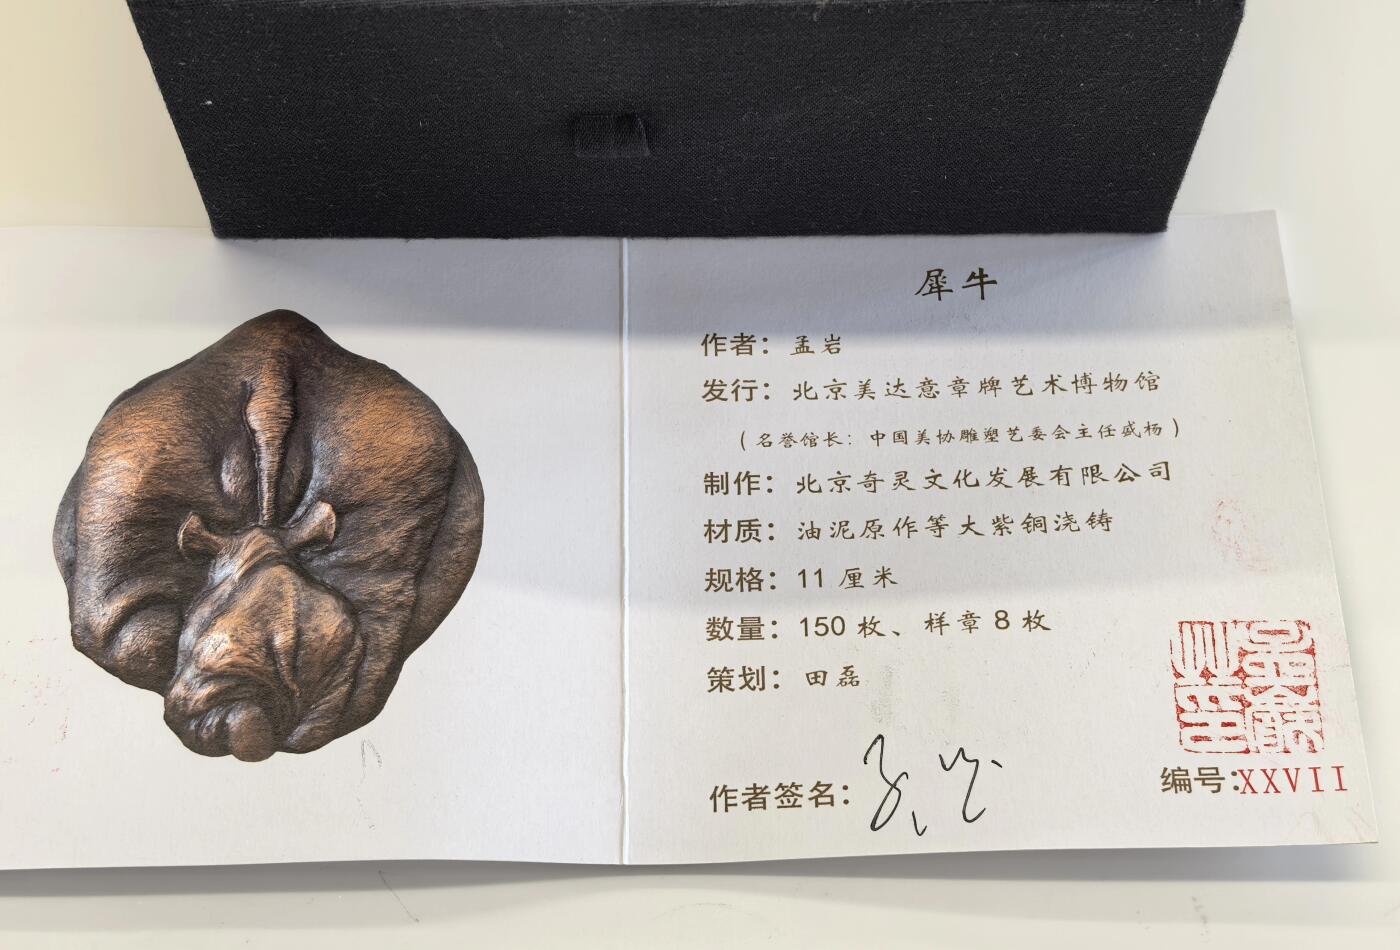 犀牛
作者：孟岩
发行：北京美达意章牌艺术博物馆
（名誉馆长：中国美协雕塑艺委会主任盛杨）
制作：北京奇灵文化发展有限公司
材质：油泥原作等大紫铜浇铸
规格：11 厘米
数量：150 枚、样章 8 枚
策划：田磊
作者签名：
编号：XXVII